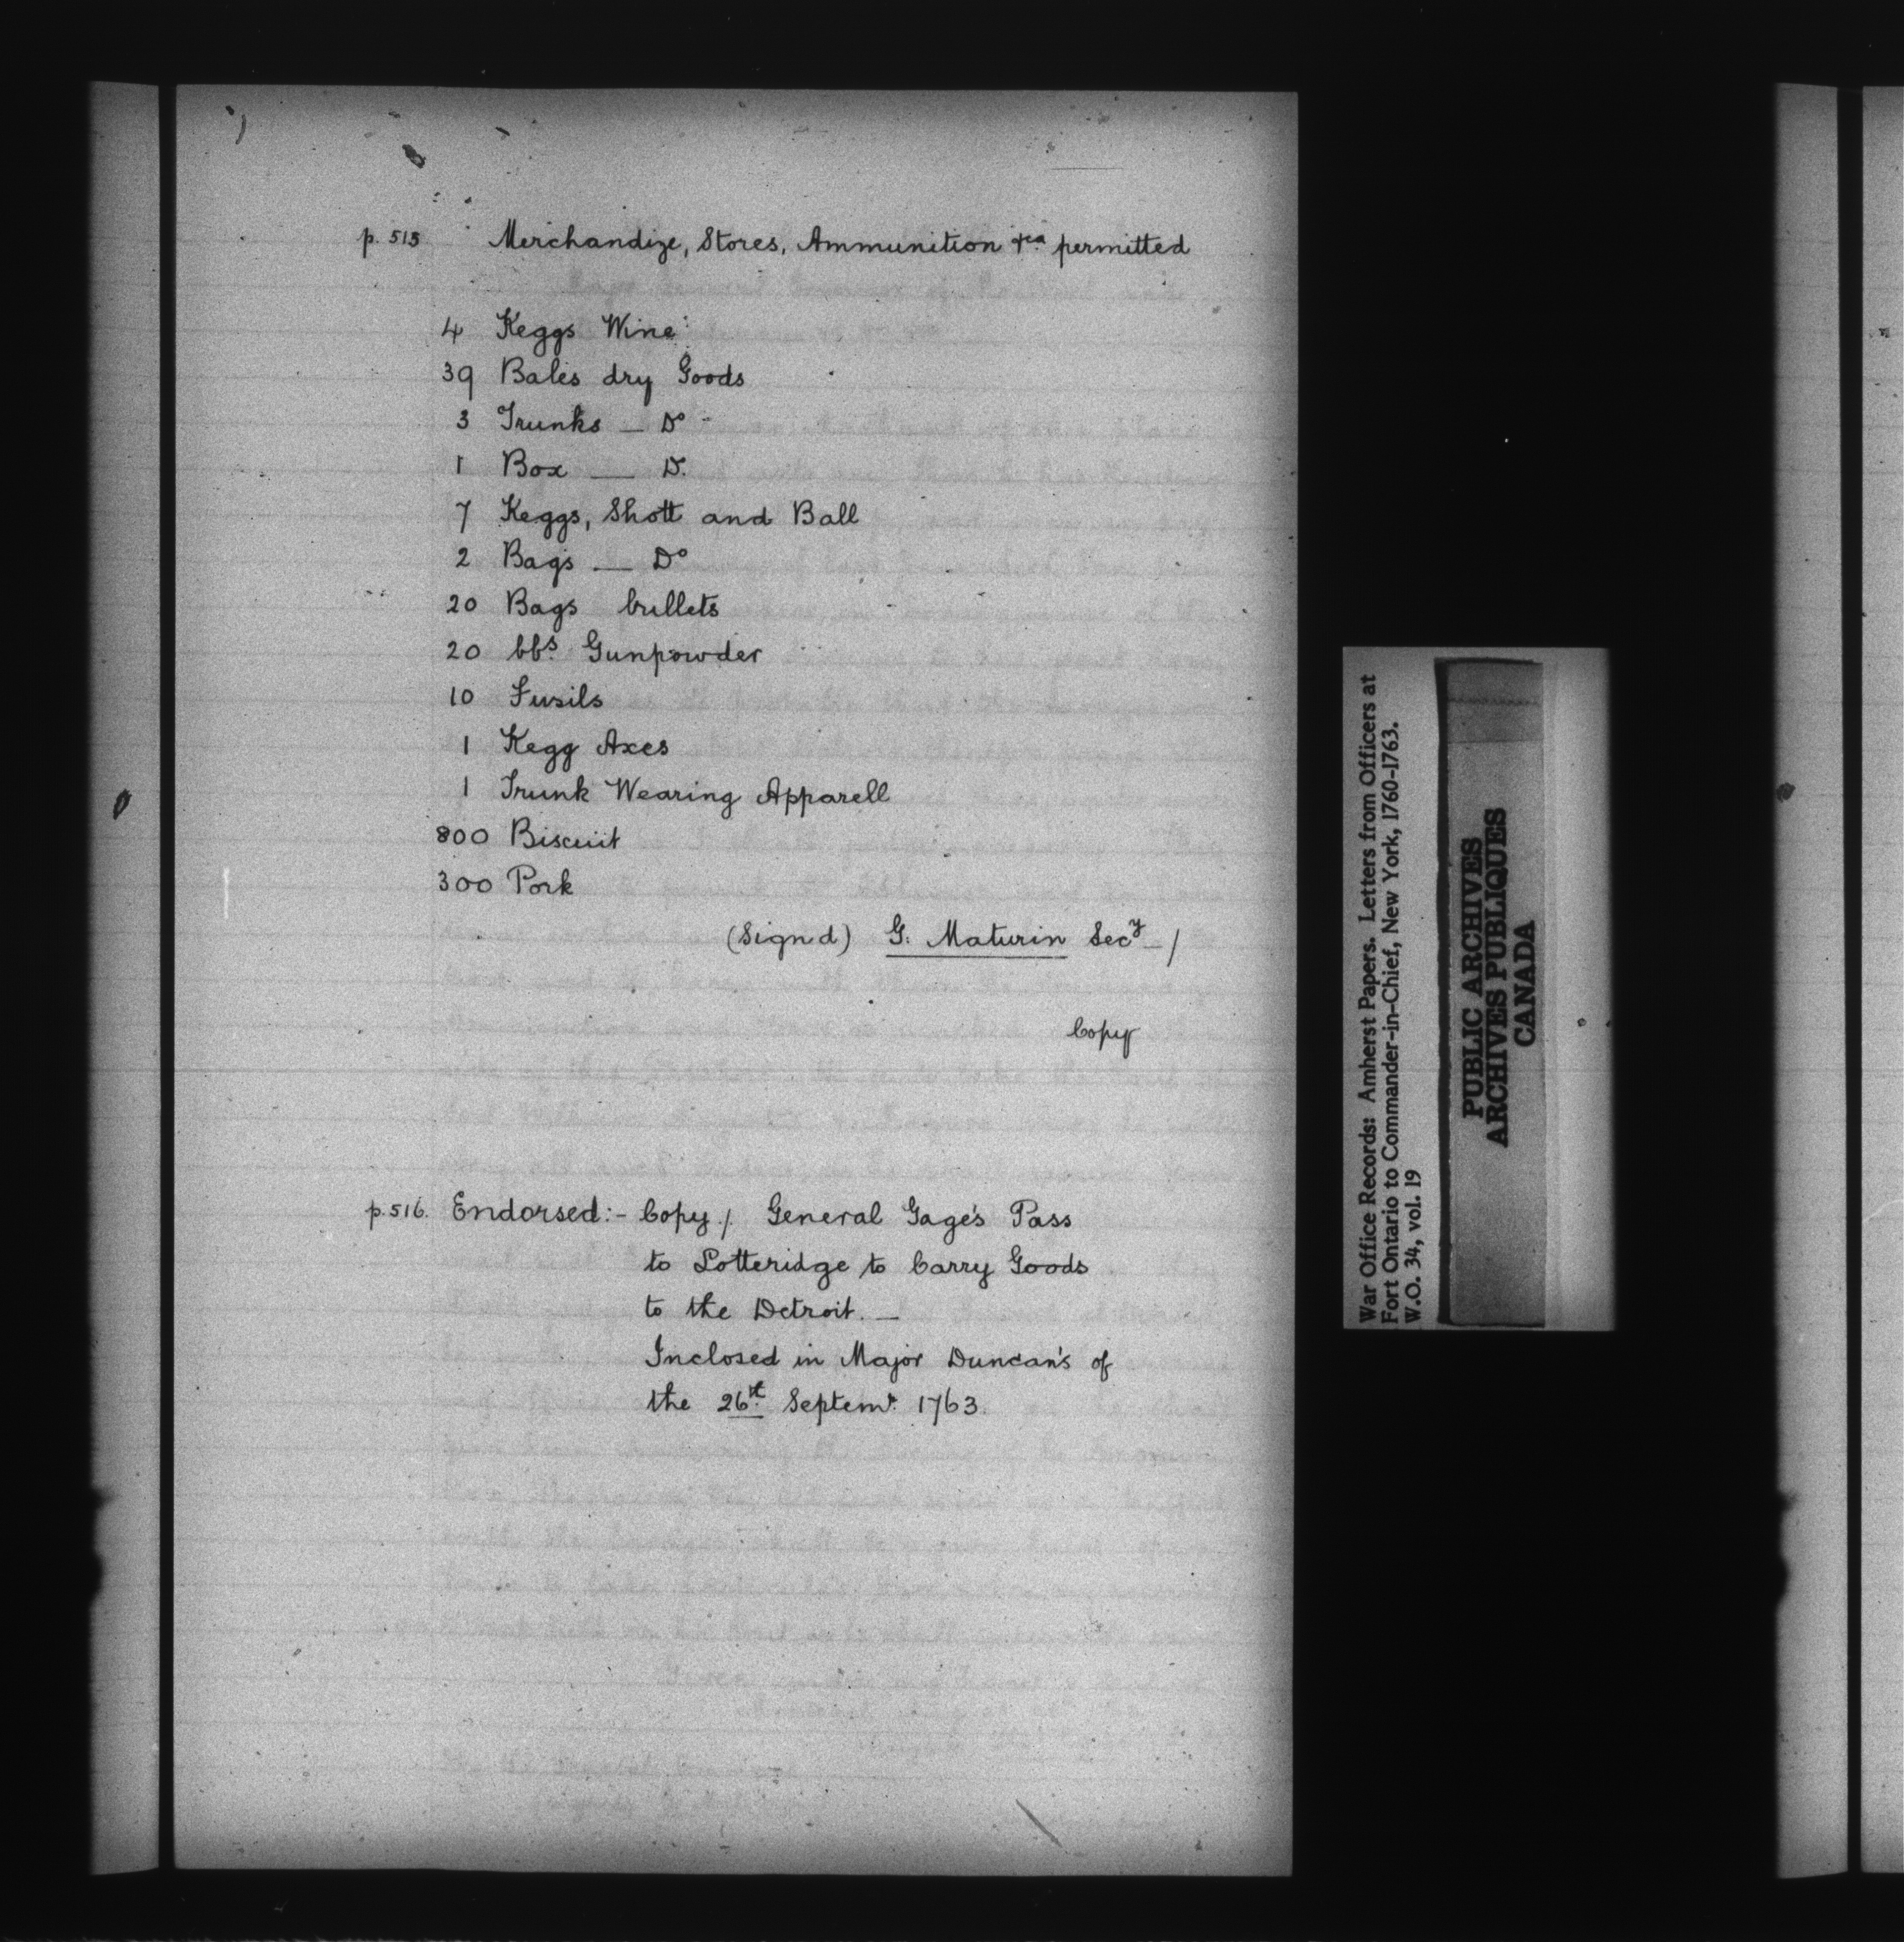 p. 515 Merchandize, Stores, Ammunition &ca permitted
4 Keggs Wine
39 Bales dry Goods
3 Trunks — Do
1 Box — D.
7 Keggs, Shott and Ball
2 Bags — Do
20 Bags bullets
20 bbs. Gunpowder
10 Fusils
1 Kegg Axes
1 Trunk Wearing Apparell
800 Biscuit
300 Pork
(Signd) G. Maturin Secy — /
Copy
p. 516. Endorsed:- Copy / General Gage's Pass
to Lotteridge to Carry Goods
to the Detroit. —
Inclosed in Major Duncan's of
the 26t. Septemr. 1763.
War Office Records: Amherst Papers. Letters from Officers at
Fort Ontario to Commander-in-Chief, New York, 1760-1763.
W.O. 34, vol. 19
PUBLIC ARCHIVES
ARCHIVES PUBLIQUES
CANADA